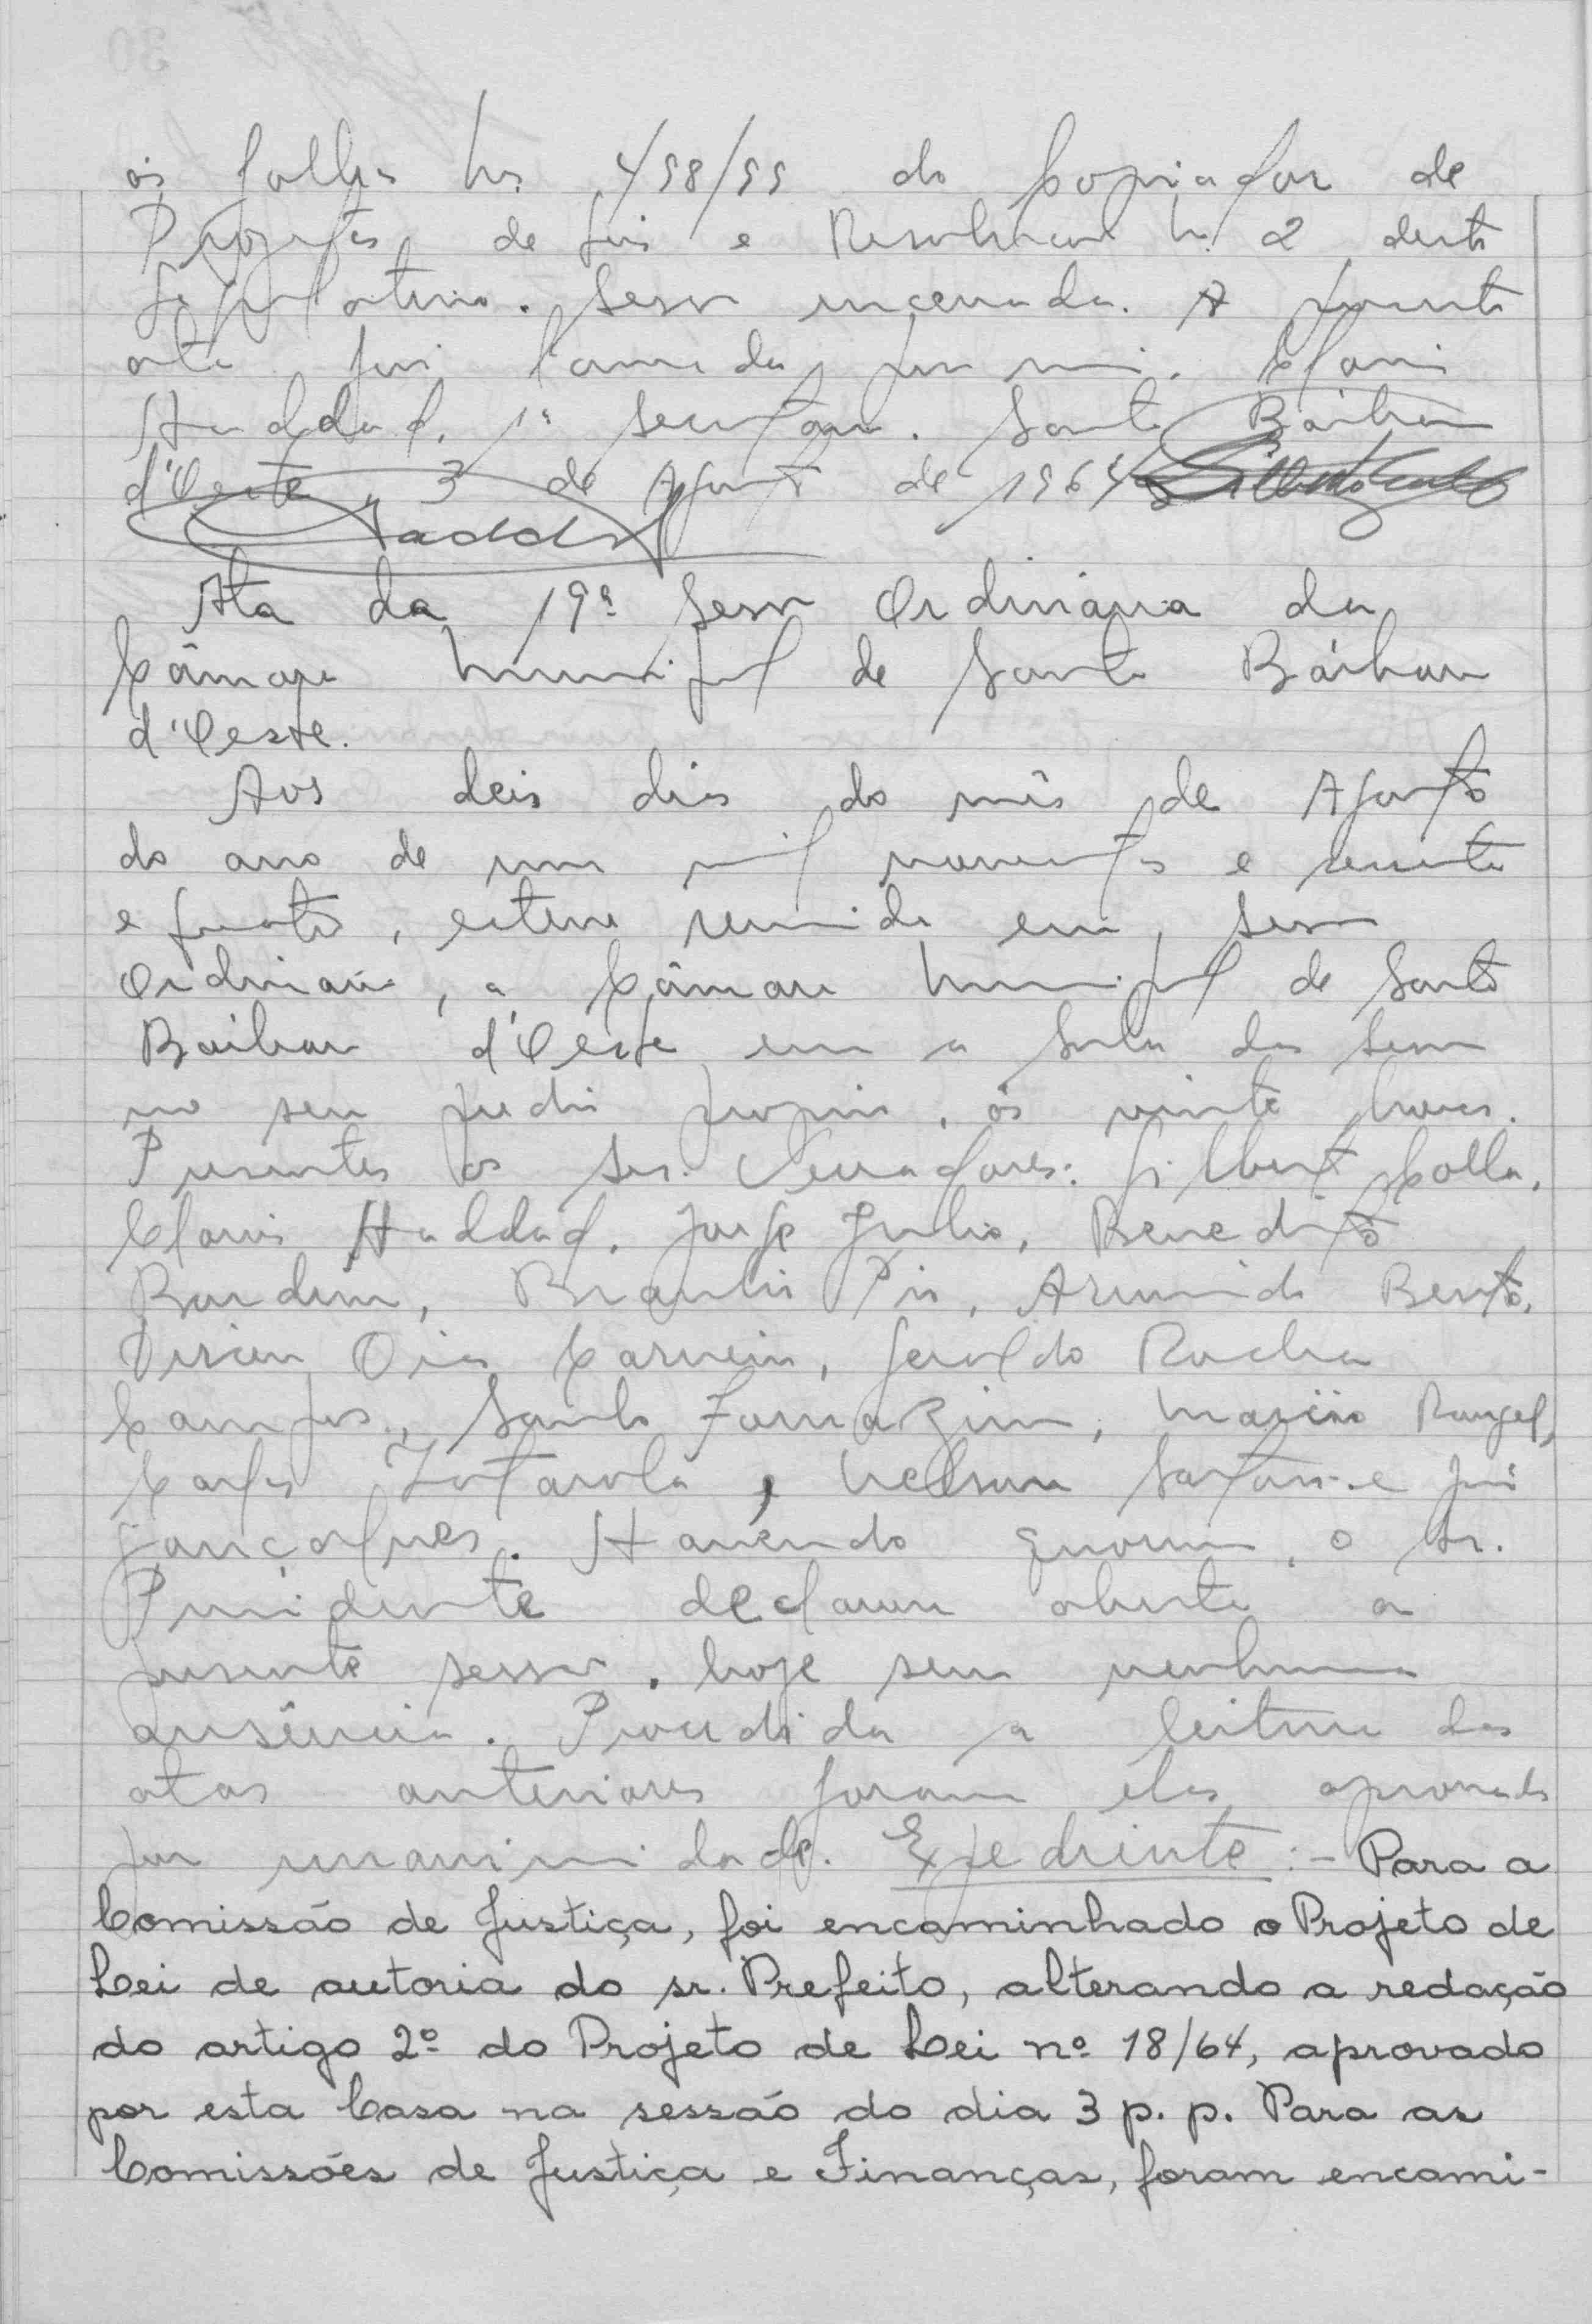 às folhas ns. 498/99 do Copiador de
Projetos de Leis e Resolucao n. 2 deste
Legislativo. Sessão encerrada. A presente
ata foi lavrada por mim, Clovis
Haddad, 1º secretario. Santa Bárbara
d'Oeste, 3 de Agosto de 1964
Haddad
Ata da 19ª Sessão Ordinária da
Câmara Municipal de Santa Bárbara
d'Oeste.
Aos dias do mês de Agosto
do ano de um mil novecentos e sessenta
e quatro, esteve reunida em, sessão
Ordinária, a Câmara Municipal de Santa
Bárbara d'Oeste em a sala das sessões
no seu predio proprio, às vinte horas.
Presentes os srs. Vereadores: Gilberto Colla,
Clovis Haddad, Jorge Julio, Benedito
Bardini, Braulio Pio, Arminda Bento,
Dirceu Dias Carneiro, Geraldo Rocha
Campos, Santo Fornazim, Marino Rangel,
Carlos Zotarola, Nelson e José
Gonçalves. Havendo quorum, o Sr.
Presidente declarou aberta a
presente sessão, hoje sem nenhuma
ausência. Procedida a leitura das
atas anteriores foram elas aprovadas
por unanimidade. Expediente:- Para a
Comissão de Justiça, foi encaminhado o Projeto de
Lei de autoria do sr. Prefeito, alterando a redação
do artigo 2º do Projeto de Lei nº 18/64, aprovado
por esta Casa na sessão do dia 3 p. p. Para as
Comissões de Justiça e Finanças, foram encami-